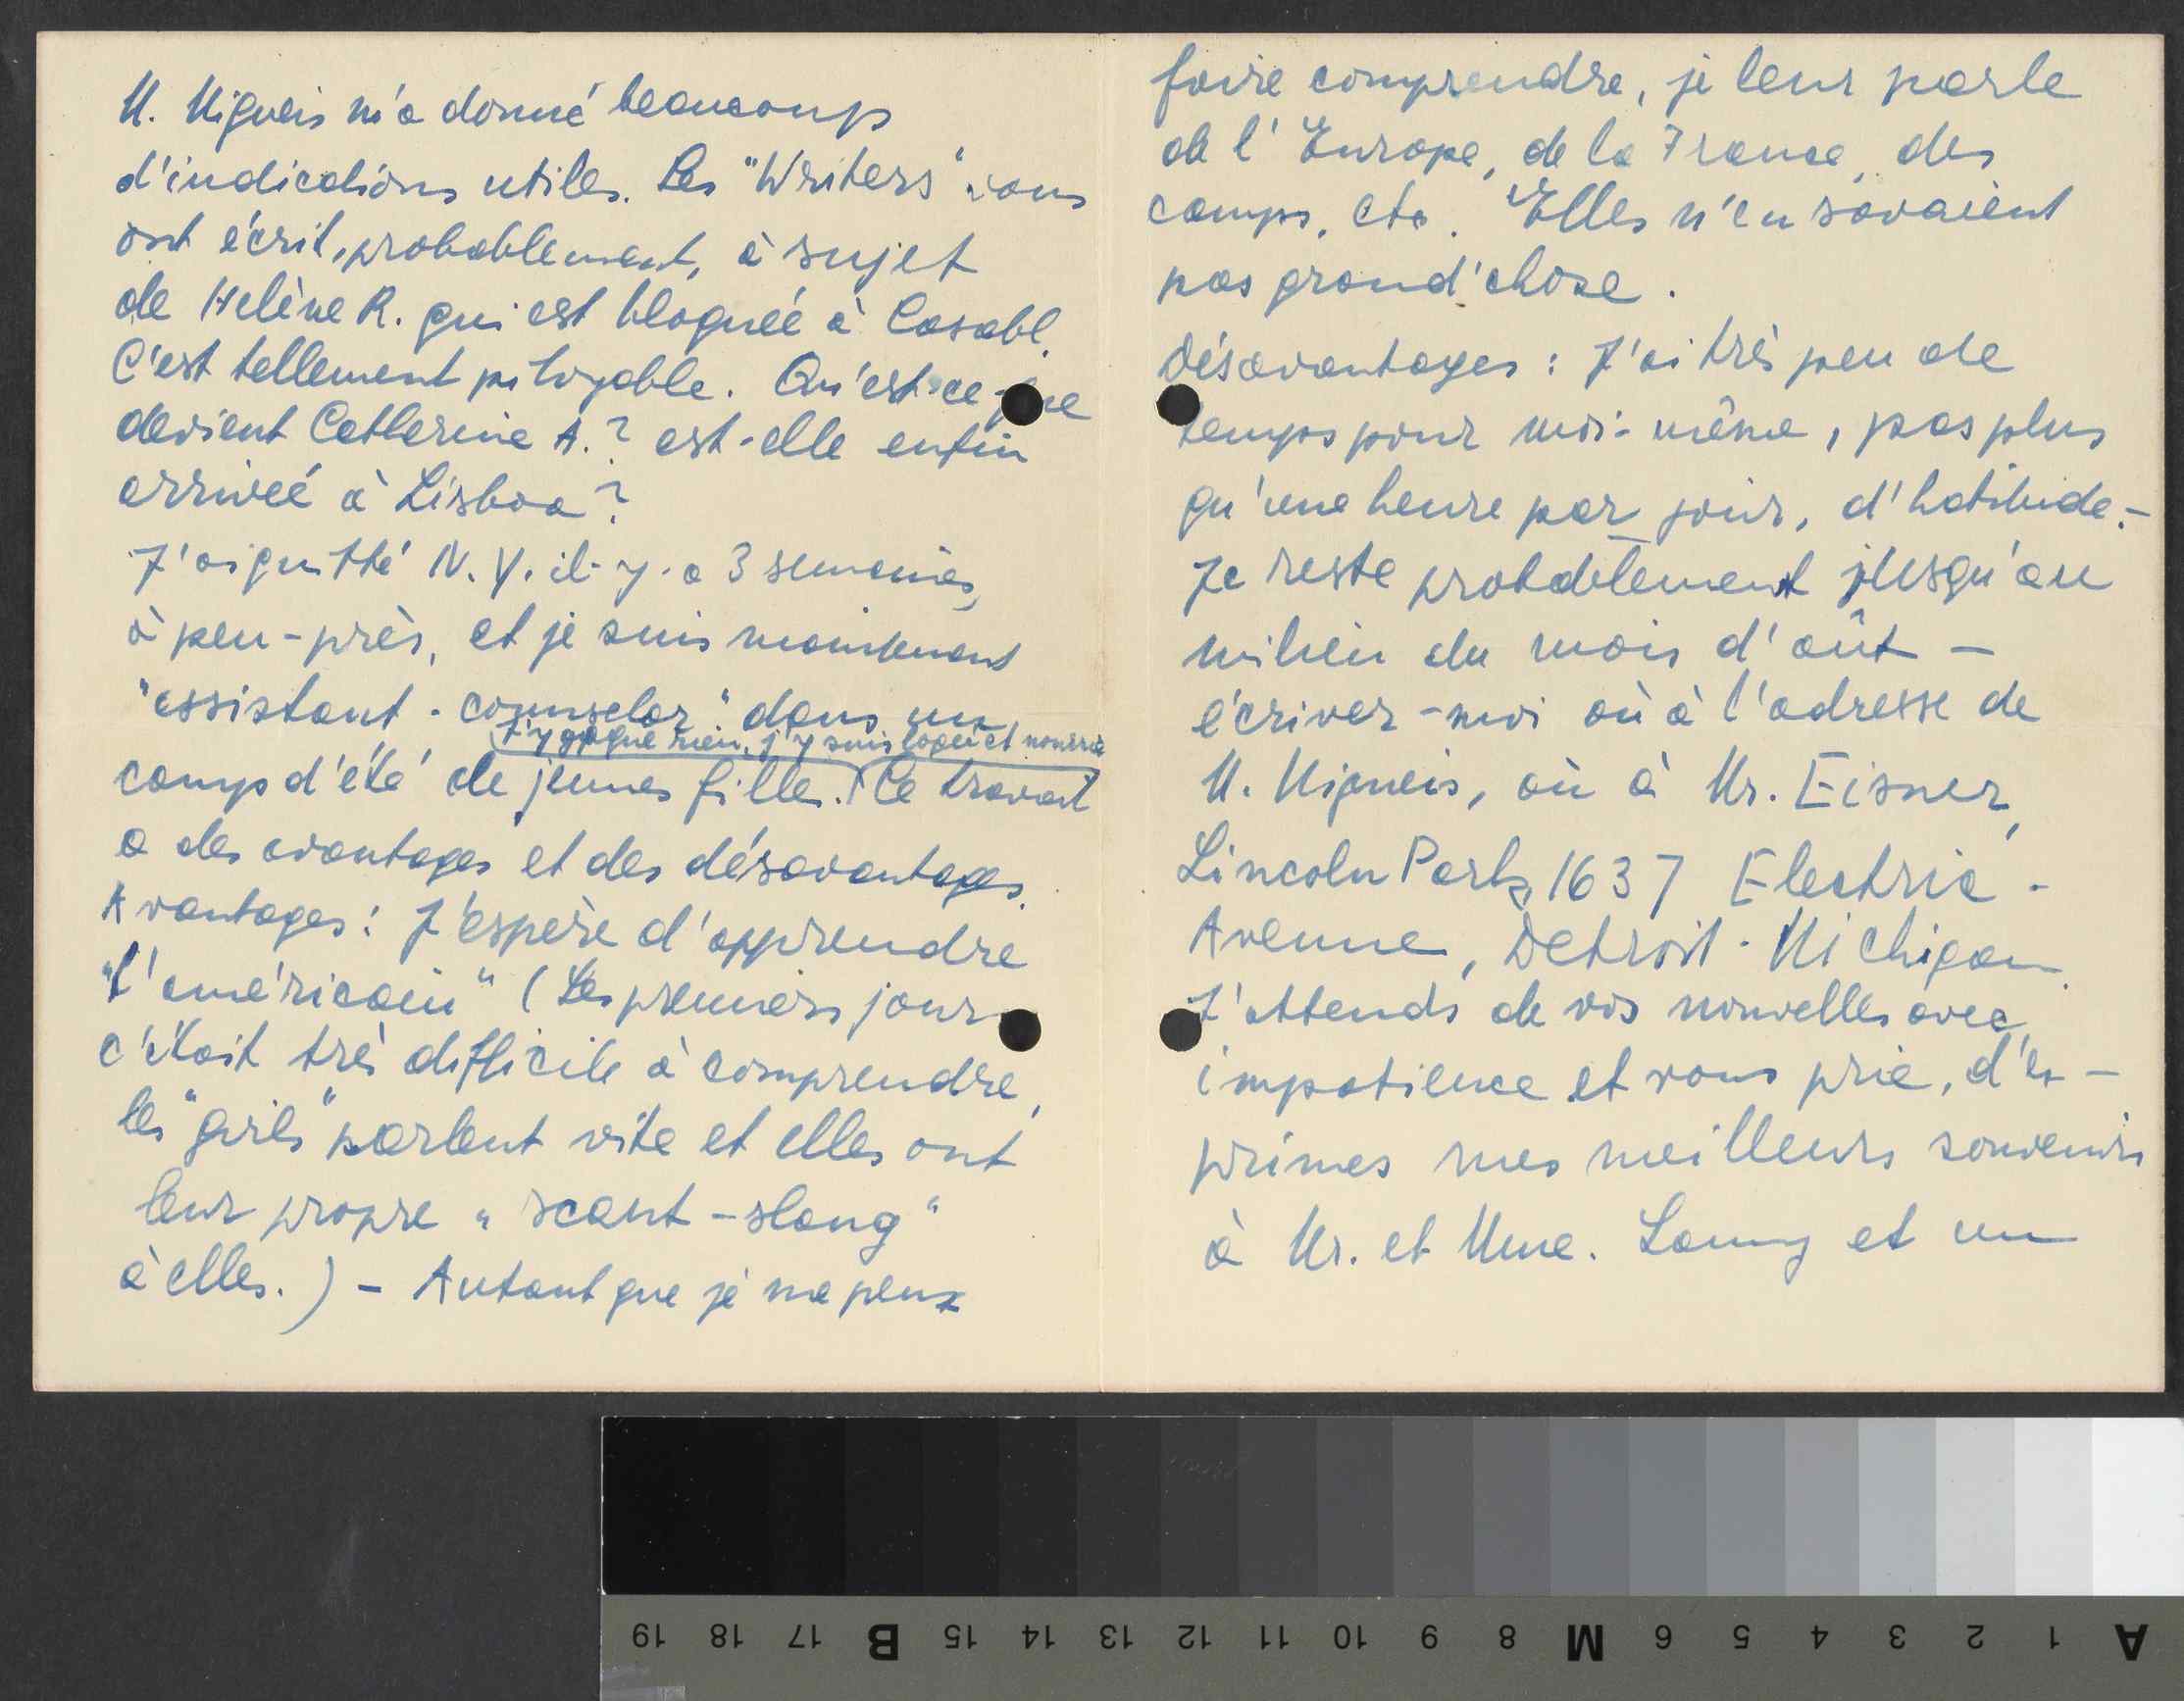 M. Migueis m'a donné beaucoup
d'indications utiles. Les "Writers" vous
ont écrit, probablement, à sujet
de Helène R. qui est bloquée à Casabl.
C'est tellement pitoyable. Qu'est-ce que
devient Catherine A.? est-elle enfin
arriveé à Lisboa?
J'ai quitté N.Y. il-y-a 3 semaines,
à peu-près, et je suis maintenant
"assistant-counselor" dans un
(J'y gagne rien, j'y suis logée et nourrie
camp d'été de jeunes filles.) Ce travail
a des avantages et des désavantages.
Avantages: J'espère d'apprendre
"l'américain" (Les premiers jours
c'était très difficile à comprendre,
les "girls" parlent vite et elles ont
leur propre "scant-slang"
à elles.) - Autant que je me peux
faire comprendre, je leur parle
de l'Europe, de la France, des
camps, etc. Elles n'en savaient
pas grand'chose.
Désavantages: J'ai très peu de
temps pour moi-même, pas plus
qu'une heure par jour, d'habitude.-
Je reste probablement jusqu'au
milieu du mois d'août -
écrivez-moi où à l'adresse de
M. Migueis, où à Mr. Eisner,
Lincoln Park, 1637 Electric-
Avenue, Detroit-Michigan.
J'attends de vos nouvelles avec
impatience et vous prie, d'ex-
primes mes meilleurs souvenirs
à Mr. et Mme. Lanny et un
A 1 2 3 4 5 6 M 8 9 10 11 12 13 14 15 B 17 18 19